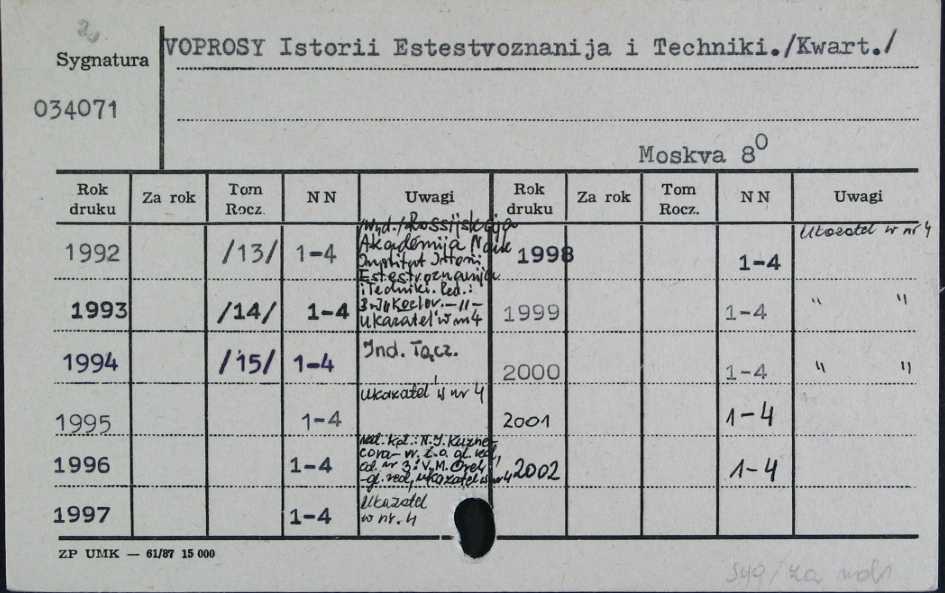 2
Sygnatura
VOPROSY Istorii Estestvoznanija i Techniki./Kwart./
034071
Moskva 8⁰
Rok druku Za rok Tom Rocz. NN Uwagi Rok druku Za rok Tom Rocz. NN Uwagi
1992 /13/ 1-4
/Wyd./Rossijskaja
Akademija Nauk
Institut Istorii
Estestvoznanija
i Techniki. Red.:
1993 /14/ 1-4
Kozlov. -11-
Ukazatel' w nr 4
1994 /15/ 1-4 Ind. łącz.
1995 1-4 Ukazatel' w nr 4
1996 1-4
red. kol.: N.I. Kuzne-
cova - gl. red,
od nr 3: V.M. Orel,
-gl. red, ukazatel' w nr 4
1997 1-4
Ukazatel
w nr. 4
1998 1-4 Ukazatel w nr 4
1999 1-4 " "
2000 1-4 " "
2001 1-4
2002 1-4
ZP UMK — 61/87 15 000